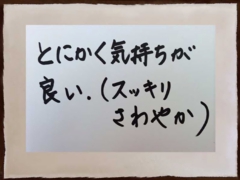 とにかく気持ちが
良い.(スッキリ
さわやか)